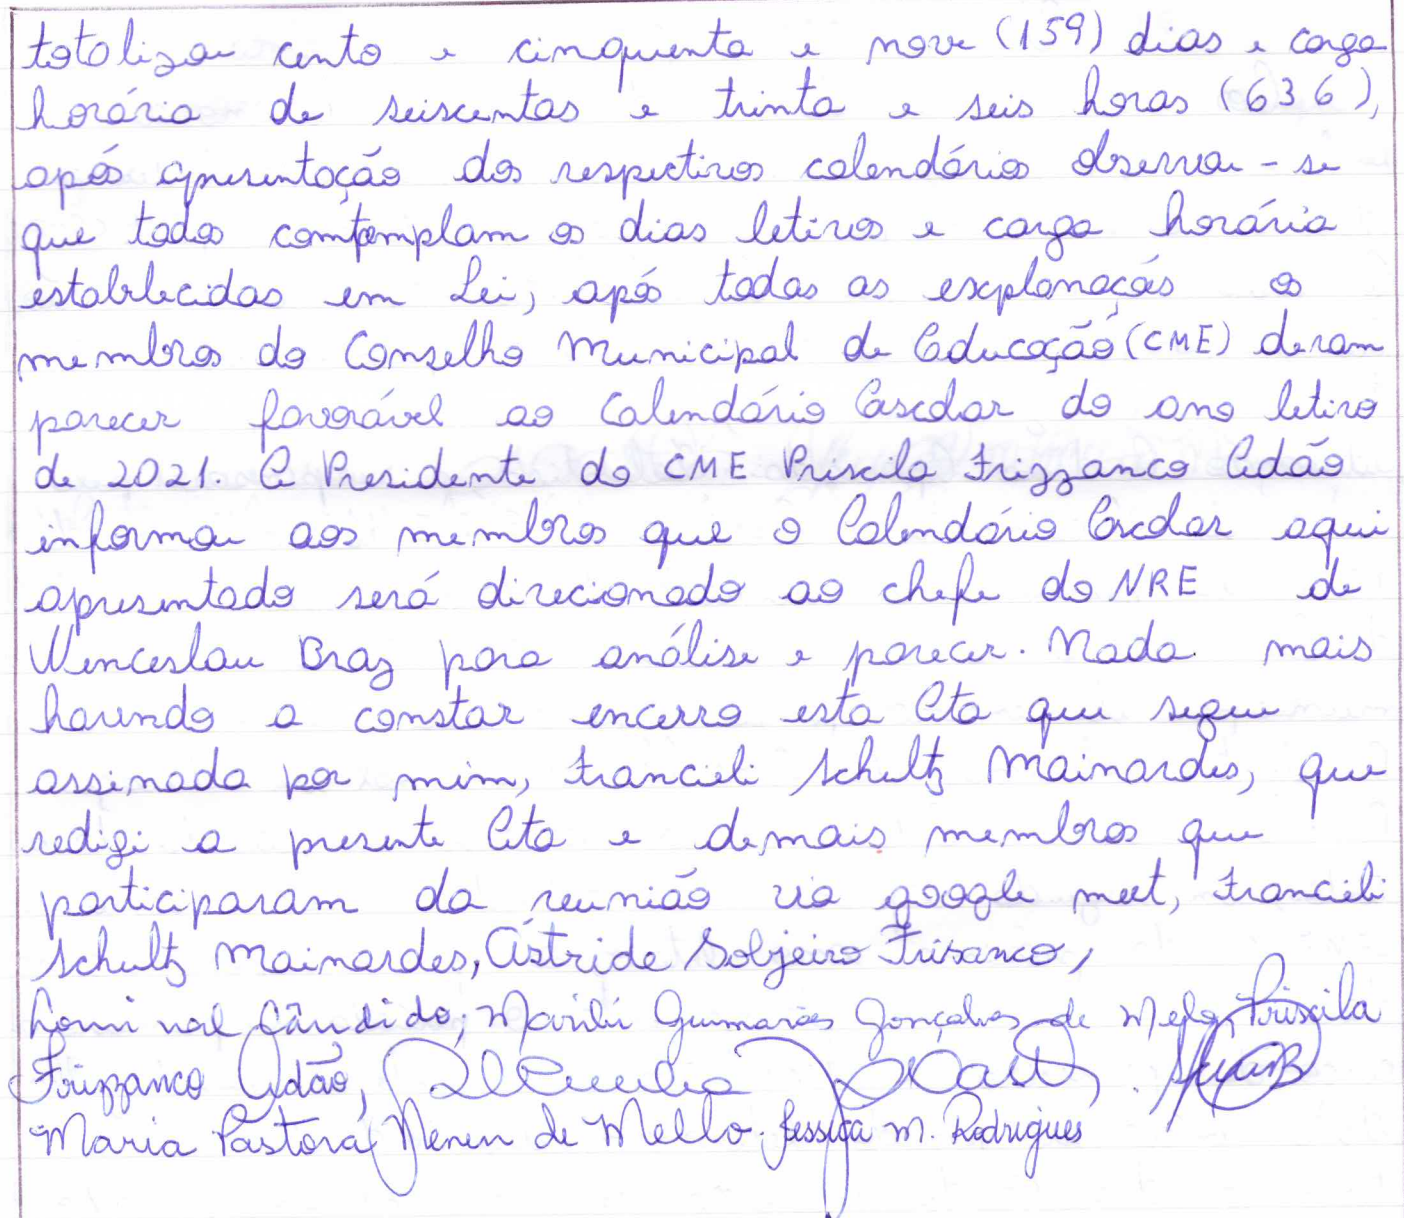 totalizou cento e cinquenta e nove (159) dias e carga
horária de seiscentas e trinta e seis horas (636),
após apresentação dos respectivos calendários observou-se
que todos comtemplam os dias letivos e carga horária
estabelecidas em Lei, após todas as explanações os
membros do Conselho Municipal de Educação (CME) deram
parecer favorável ao Calendário Escolar do ano letivo
de 2021. A Presidente do CME Priscila Frizzanco Adão
informou aos membros que o Calendário Escolar aqui
apresentado será direcionado ao chefe do NRE de
Wenceslau Braz para análise e parecer. Nada mais
havendo a constar encerro esta Ata que segue
assinada por mim, Francieli Schultz Mainardes, que
redigi a presente Ata e demais membros que
participaram da reunião via google meet, Francieli
Schultz Mainardes, Astride Sobjeiro Frisanco,
Lourival Cândido, Marili Guimarães Gonçalves de Melo, Priscila
Frizzanco Adão,
Maria Pastora Neren de Mello. Jessica M. Rodrigues